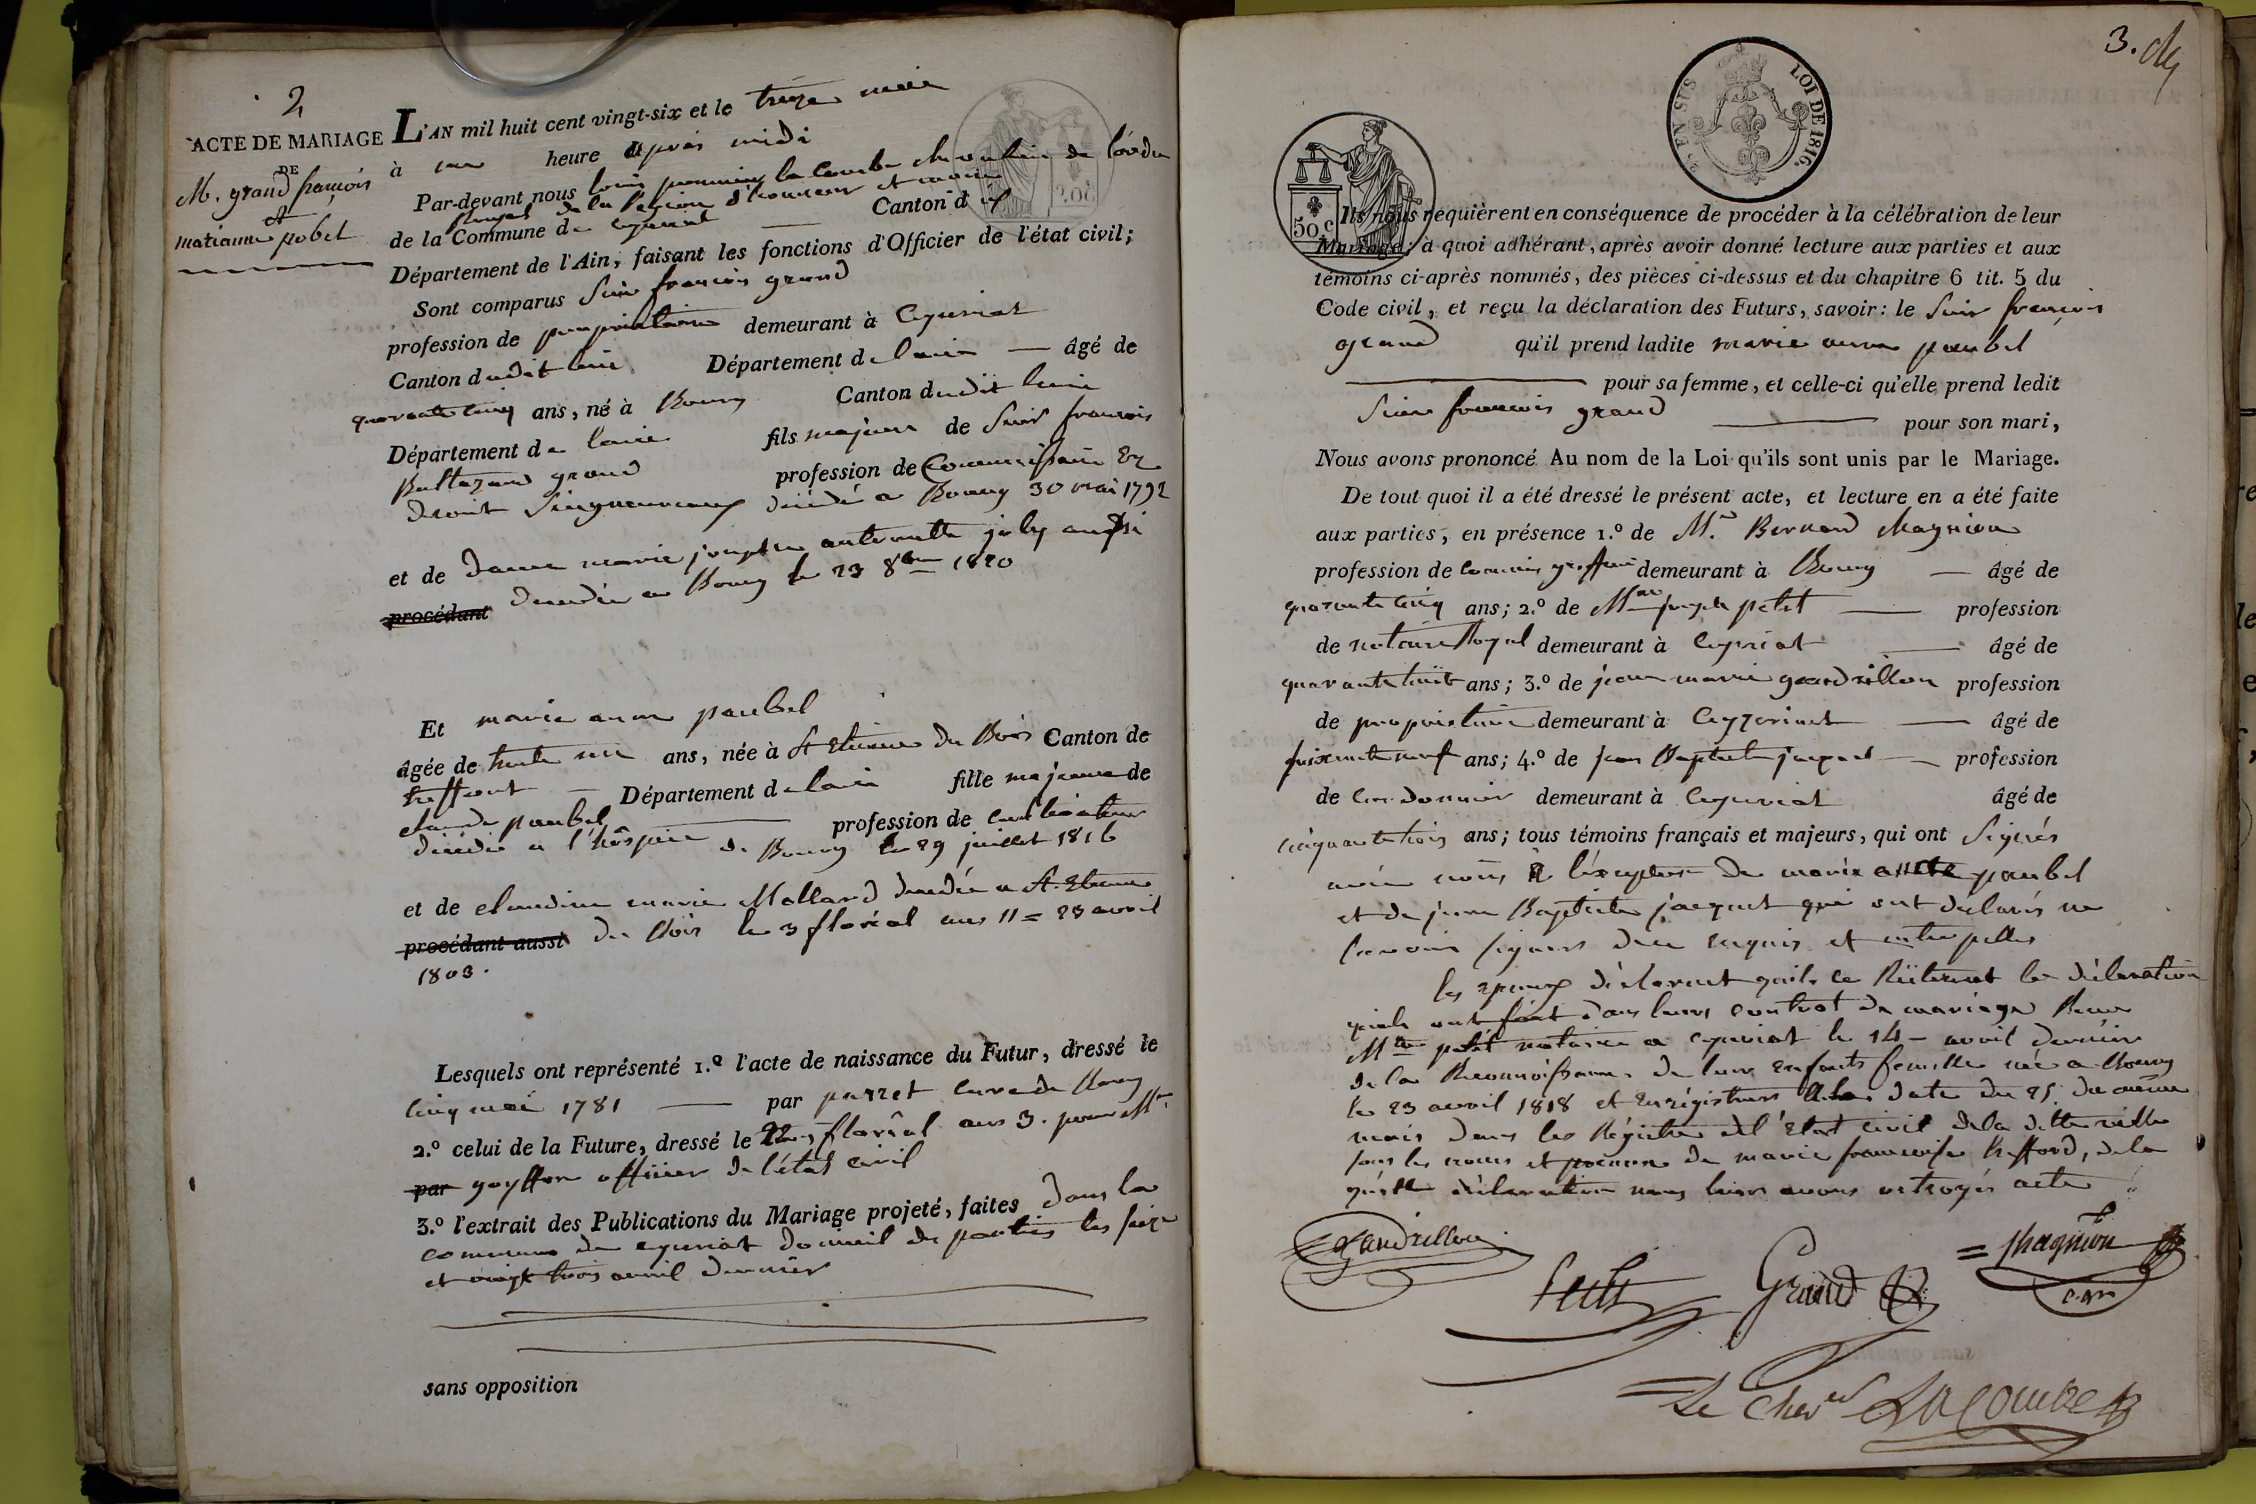 2
ACTE DE MARIAGE
DE
M. grand françois
et
marianne pobel
L'AN mil huit cent vingt-six et le treize mai
à une heure après midi
Par-devant nous louis la Combe chevalier de l'ordre
de la Légion d'honneur et maire
de la Commune de Ceyzeriat Canton d
Département de l'Ain, faisant les fonctions d'Officier de l'état civil;
Sont comparus Sieur françois grand
profession de propriétaire demeurant à Ceyzeriat
Canton dudit lieu Département de lain — âgé de
quarante cinq ans, né à Bourg Canton dudit lieu
Département de lain fils majeur de Sieur françois
Baltazard grand profession de Commissaire En
droit Seigneuriaux décédé a Bourg 30 mai 1792
et de dame marie josephe antoinette joly aussi
procédant décédée a Bourg le 23 8bre 1820
Et marie anne paubel
âgée de trente un ans, née à St Etienne du Bois Canton de
treffort — Département de lain fille majeure de
claude paubel profession de cultivateur
décédé a l'hospice de Bourg le 29 juillet 1816
et de claudine marie Mallard décédée a St. Etienne
procédant aussi du Bois le 3 floréal an 11 = 23 avril
1803.
Lesquels ont représenté 1.º l'acte de naissance du Futur, dressé le
cinq mai 1781 — par parret curé de Bourg
2.º celui de la Future, dressé le 22 floréal an 3. par Mr.
par goyffon officier de l'état civil
3.º l'extrait des Publications du Mariage projeté, faites dans la
commune de ceyzeriat domicil des parties les seize
et vingt trois avril dernier
sans opposition
3.
EN SUS
LOI DE 1816.
50 C
Ils nous requièrent en conséquence de procéder à la célébration de leur
Mariage; à quoi adhérant, après avoir donné lecture aux parties et aux
témoins ci-après nommés, des pièces ci-dessus et du chapitre 6 tit. 5 du
Code civil, et reçu la déclaration des Futurs, savoir: le Sieur françois
grand qu'il prend ladite marie anne paubel
pour sa femme, et celle-ci qu'elle prend ledit
Sieur françois grand — pour son mari,
Nous avons prononcé Au nom de la Loi qu'ils sont unis par le Mariage.
De tout quoi il a été dressé le présent acte, et lecture en a été faite
aux parties, en présence 1.º de Mr. Bernard Magnion
profession de commis greffier demeurant à Bourg — âgé de
quarante cinq ans; 2.º de Mre joseph petit — profession
de notaire Royal demeurant à Ceyzeriat — âgé de
quarante huit ans; 3.º de jean marie gandrillon profession
de propriétaire demeurant à Ceyzeriat — âgé de
soixante neuf ans; 4.º de jean Baptiste jacquet — profession
de cordonnier demeurant à Ceyzeriat âgé de
cinquante trois ans; tous témoins français et majeurs, qui ont Signés
avec nous à l'exception de marie anne paubel
et de jean Baptiste jacquet qui ont déclarés ne
savoir signer de ce requis et interpellés
les epoux déclarent qu'ils réiterent la déclaration
quils ont fait dans leur contrat de mariage Reçu
Mtre petit notaire a ceyzeriat le 14 — avril dernier
de la Reconnoissance de leur enfant femelle née a Bourg
le 23 avril 1818 et Enrégistrées à la date du 25 du même
mois dans les Régistre de l'Etat civil de la ditte ville
sous les noms et prénoms de marie françoise trefford, de la
quelle déclaration nous leurs avons octroyés acte
Gandrillon
Petit
Grand
Magnion
c. gr.
Le Cher LACombe